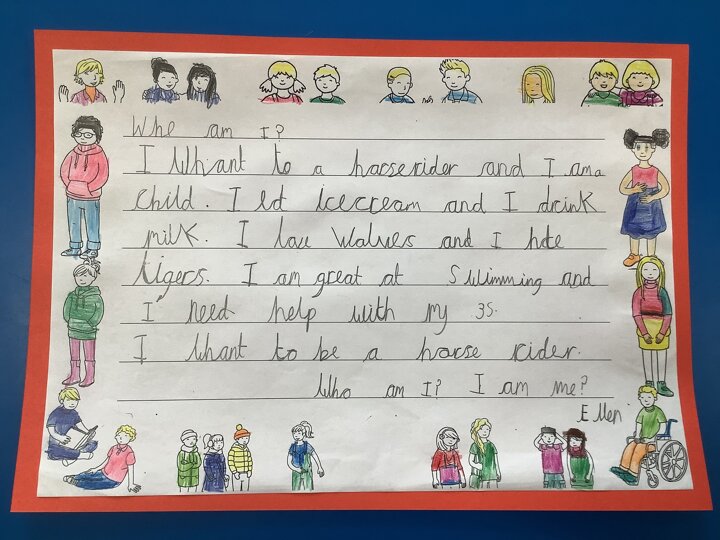 Whe am I?
I Whant to a horserider and I am a
child. I et icecream and I drink
milk. I love Wolves and I hate
tigers. I am great at Swimming and
I need help with my 3s.
I Whant to be a horse rider.
Who am I? I am me?
Ellen